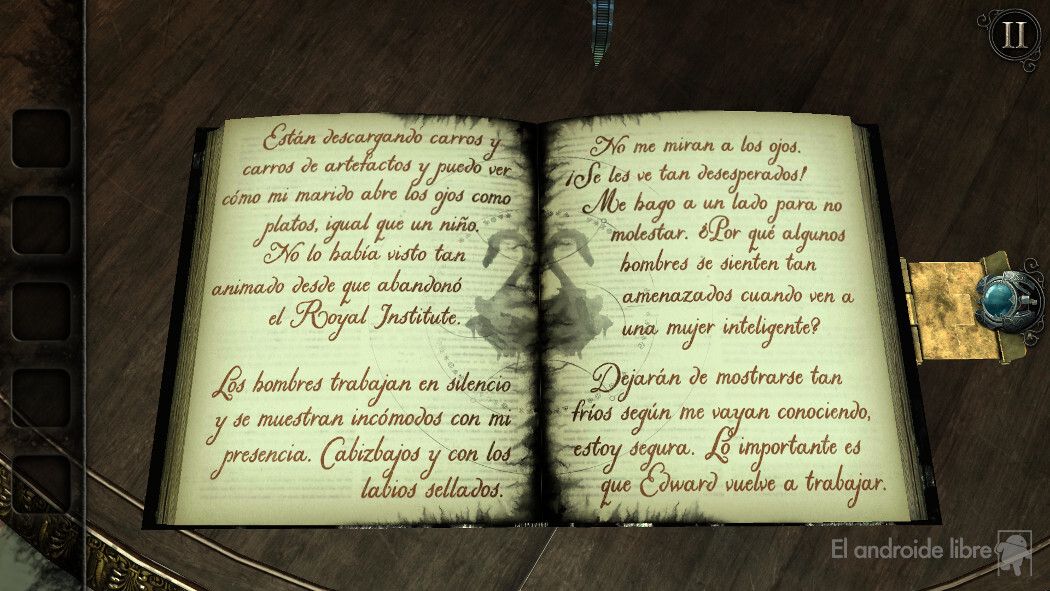 Están descargando carros y
carros de artefactos y puedo ver
cómo mi marido abre los ojos como
platos, igual que un niño.
No lo había visto tan
animado desde que abandonó
el Royal Institute.
Los hombres trabajan en silencio
y se muestran incómodos con mi
presencia. Cabizbajos y con los
labios sellados.
No me miran a los ojos.
¡Se les ve tan desesperados!
Me hago a un lado para no
molestar. ¿Por qué algunos
hombres se sienten tan
amenazados cuando ven a
una mujer inteligente?
Dejarán de mostrarse tan
fríos según me vayan conociendo,
estoy segura. Lo importante es
que Edward vuelve a trabajar.
II
El androide libre